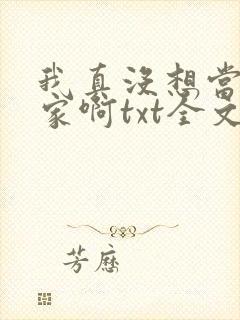 我真没想当
家啊txt全文
芳歷